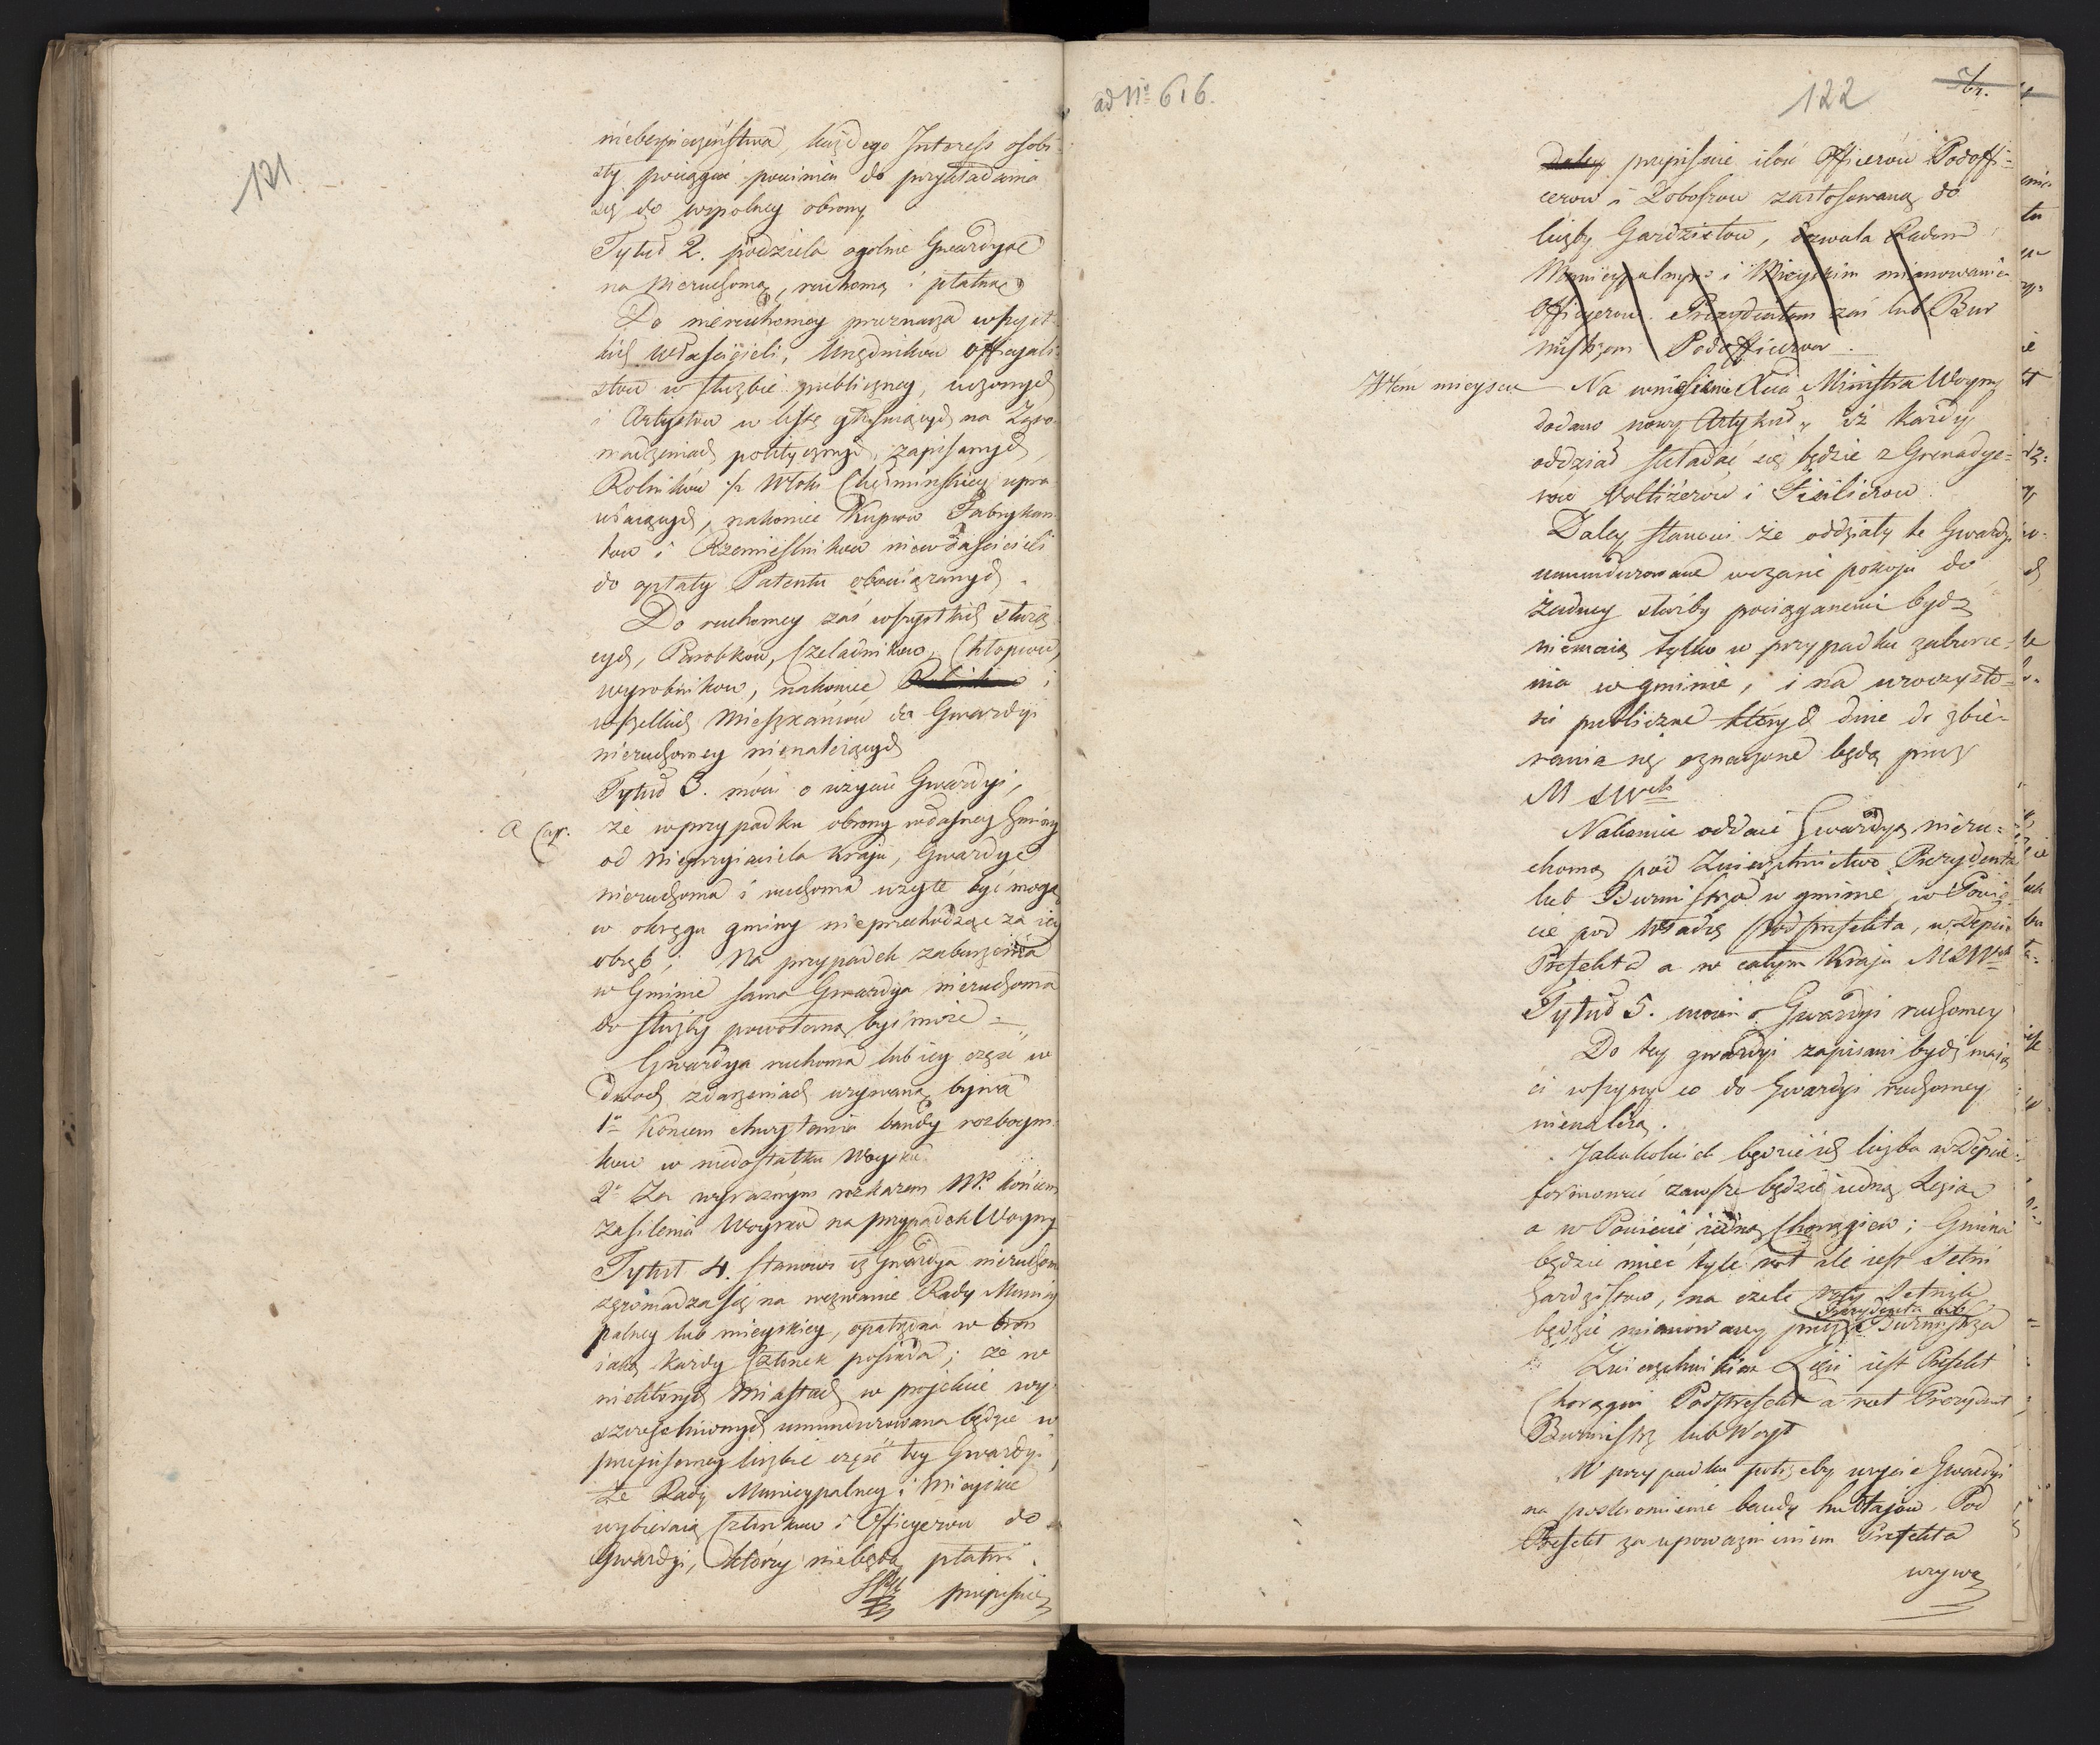 121
niebezpieczeństwa, każdego Interess osobi-
sty pociągać powinien do przykładania
się do wspolney obrony
Tytuł 2. podziela ogolnie Gwardyą
na Nieruchomą, ruchomą i płatną
Do nieruchomey przeznacza wszyst-
kich właścicieli, Urzędników officyali-
stow w służbie publiczney, uczonych
i Artystow w Xsięgi głosuiących na Zgro-
madzeniach politycznych, zapisanych,
Rolników ½ Włoki Chełminskiey upra-
wiaiących, nakoniec Kupcow Fabrykan-
tow i Rzemieslnikow niewłaścicieli
do opłaty Patentu obowiązanych.
Do ruchomey zaś wszystkich służą-
cych, Parobków, Czeladnikow, Chłopcow,
wyrobnikow, nakoniec i
wszelkich Mieszkańcow do Gwardyi
nieruchomey nienależących
Tytuł 3. mówi o użyciu Gwardyi,
a Cap. że w przypadku obrony własney Gminy
od Nieprzyiaciela Kraju, Gwardye
nieruchoma i ruchoma użyte być mogą
w okręgu gminy nieprzechodząc za iey
obręb; Na przypadek zaburzenia
w Gminie sama Gwardya nieruchoma
do służby powołaną być może =
Gwardya ruchoma lub iey część w
dwoch zdarzeniach używaną bywa
1º Końcem chwytania bandy rozboyni-
kow w niedostatku Woyska
2º Za wyraźnym rozkazem końcem
zasilenia Woyska na przypadek Woyny
Tytuł 4. stanowi iż Gwardya nieruchom
zgromadza się na wezwanie Rady Municy
palney lub mieyskiey, opatrzona w broń
iaką każdy Członek posiada; że w
niektórych Miastach w projekcie wy-
szczególnionych umundurowana będzie w
przepisaney liczbie część tey Gwardyi,
że Rady Municypalney i Mieyskie
wybieraią Członkow i Officyerow do
Gwardyi, którzy niebędą płatni.
przepisuie
ad Nº 616.
122
Daley przepisuie ilość Officerów Podoffi-
cerow i Doboszow zastosowaną do
liczby Gardzistow, dozwala Radom
Municypalnym i Mieyskim mianowanie
Officyerow Prezydentom zaś lub Bur
mistrzom Podofficerow.
W tém mieyscu — Na wniesienie Xcia Ministra Woyny
dodano nowy Artykuł, iż każdy
oddział składać się będzie z Grenadye-
row Voltiżerów i Fizilierow.
Daley stanowi że oddziały te Gwardyi
umundurowane w czasie pokoju do
żadney służby pociąganemi bydź
niemaią tylko w przypadku zaburze-
nia w gminie, i na uroczysto-
ści publiczne których dnie do zbie-
rania się oznaczone będą przez
M S Wch
Nakoniec oddaie Gwardyą nieru-
chomą pod Zwierzchnictwo Prezydenta
lub Burmistrza w gminie, w Powie-
cie pod władzę Podprefekta, w Depie
Prefekta a w całym Kraju M S Wch
Tytuł 5. mowi o Gwardyi ruchomey
Do tey gwardyi zapisani bydź maią
ci wszyscy co do Gwardyi ruchomey
nienależą.
Jakakolwiek będzie ich liczba w Depie
formować zawsze będzie iedną Legią
a w Powiecie iedną Chorągiew; Gmina
będzie mieć tyle rot ile iest Setni
Gardzistow, na czele roty Setnik
będzie mianowany przez Prezydenta lub Burmistrza
Zwierzchnikiem Legii iest Prefekt
Chorągwi Podprefekt a rot Prezydent
Burmistrz lub Woyt
W przypadku potrzeby użycie Gwardyi
na poskromienie bandy hultajow, Pod
Prefekt za upoważnieniem Prefekta
używa